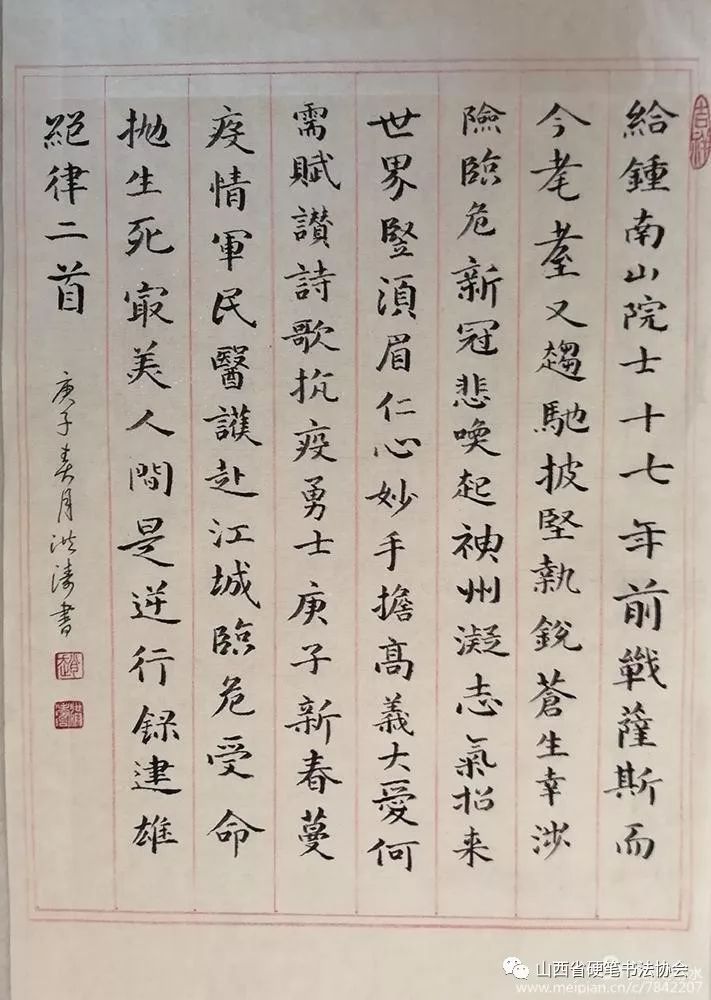 給鍾南山院士十七年前戰薩斯而
今耄耋又趨馳披堅執銳蒼生幸涉
險臨危新冠悲喚起神州凝志氣招来
世界竪須眉仁心妙手擔高義大愛何
需賦讃詩歌抗疫勇士庚子新春蔓
疫情軍民醫護赴江城臨危受命
拋生死寂美人間是逆行録建雄
絕律二首
庚子春月洪涛書
吉祥
山西省硬笔书法协会
www.meipian.cn/c/7842207